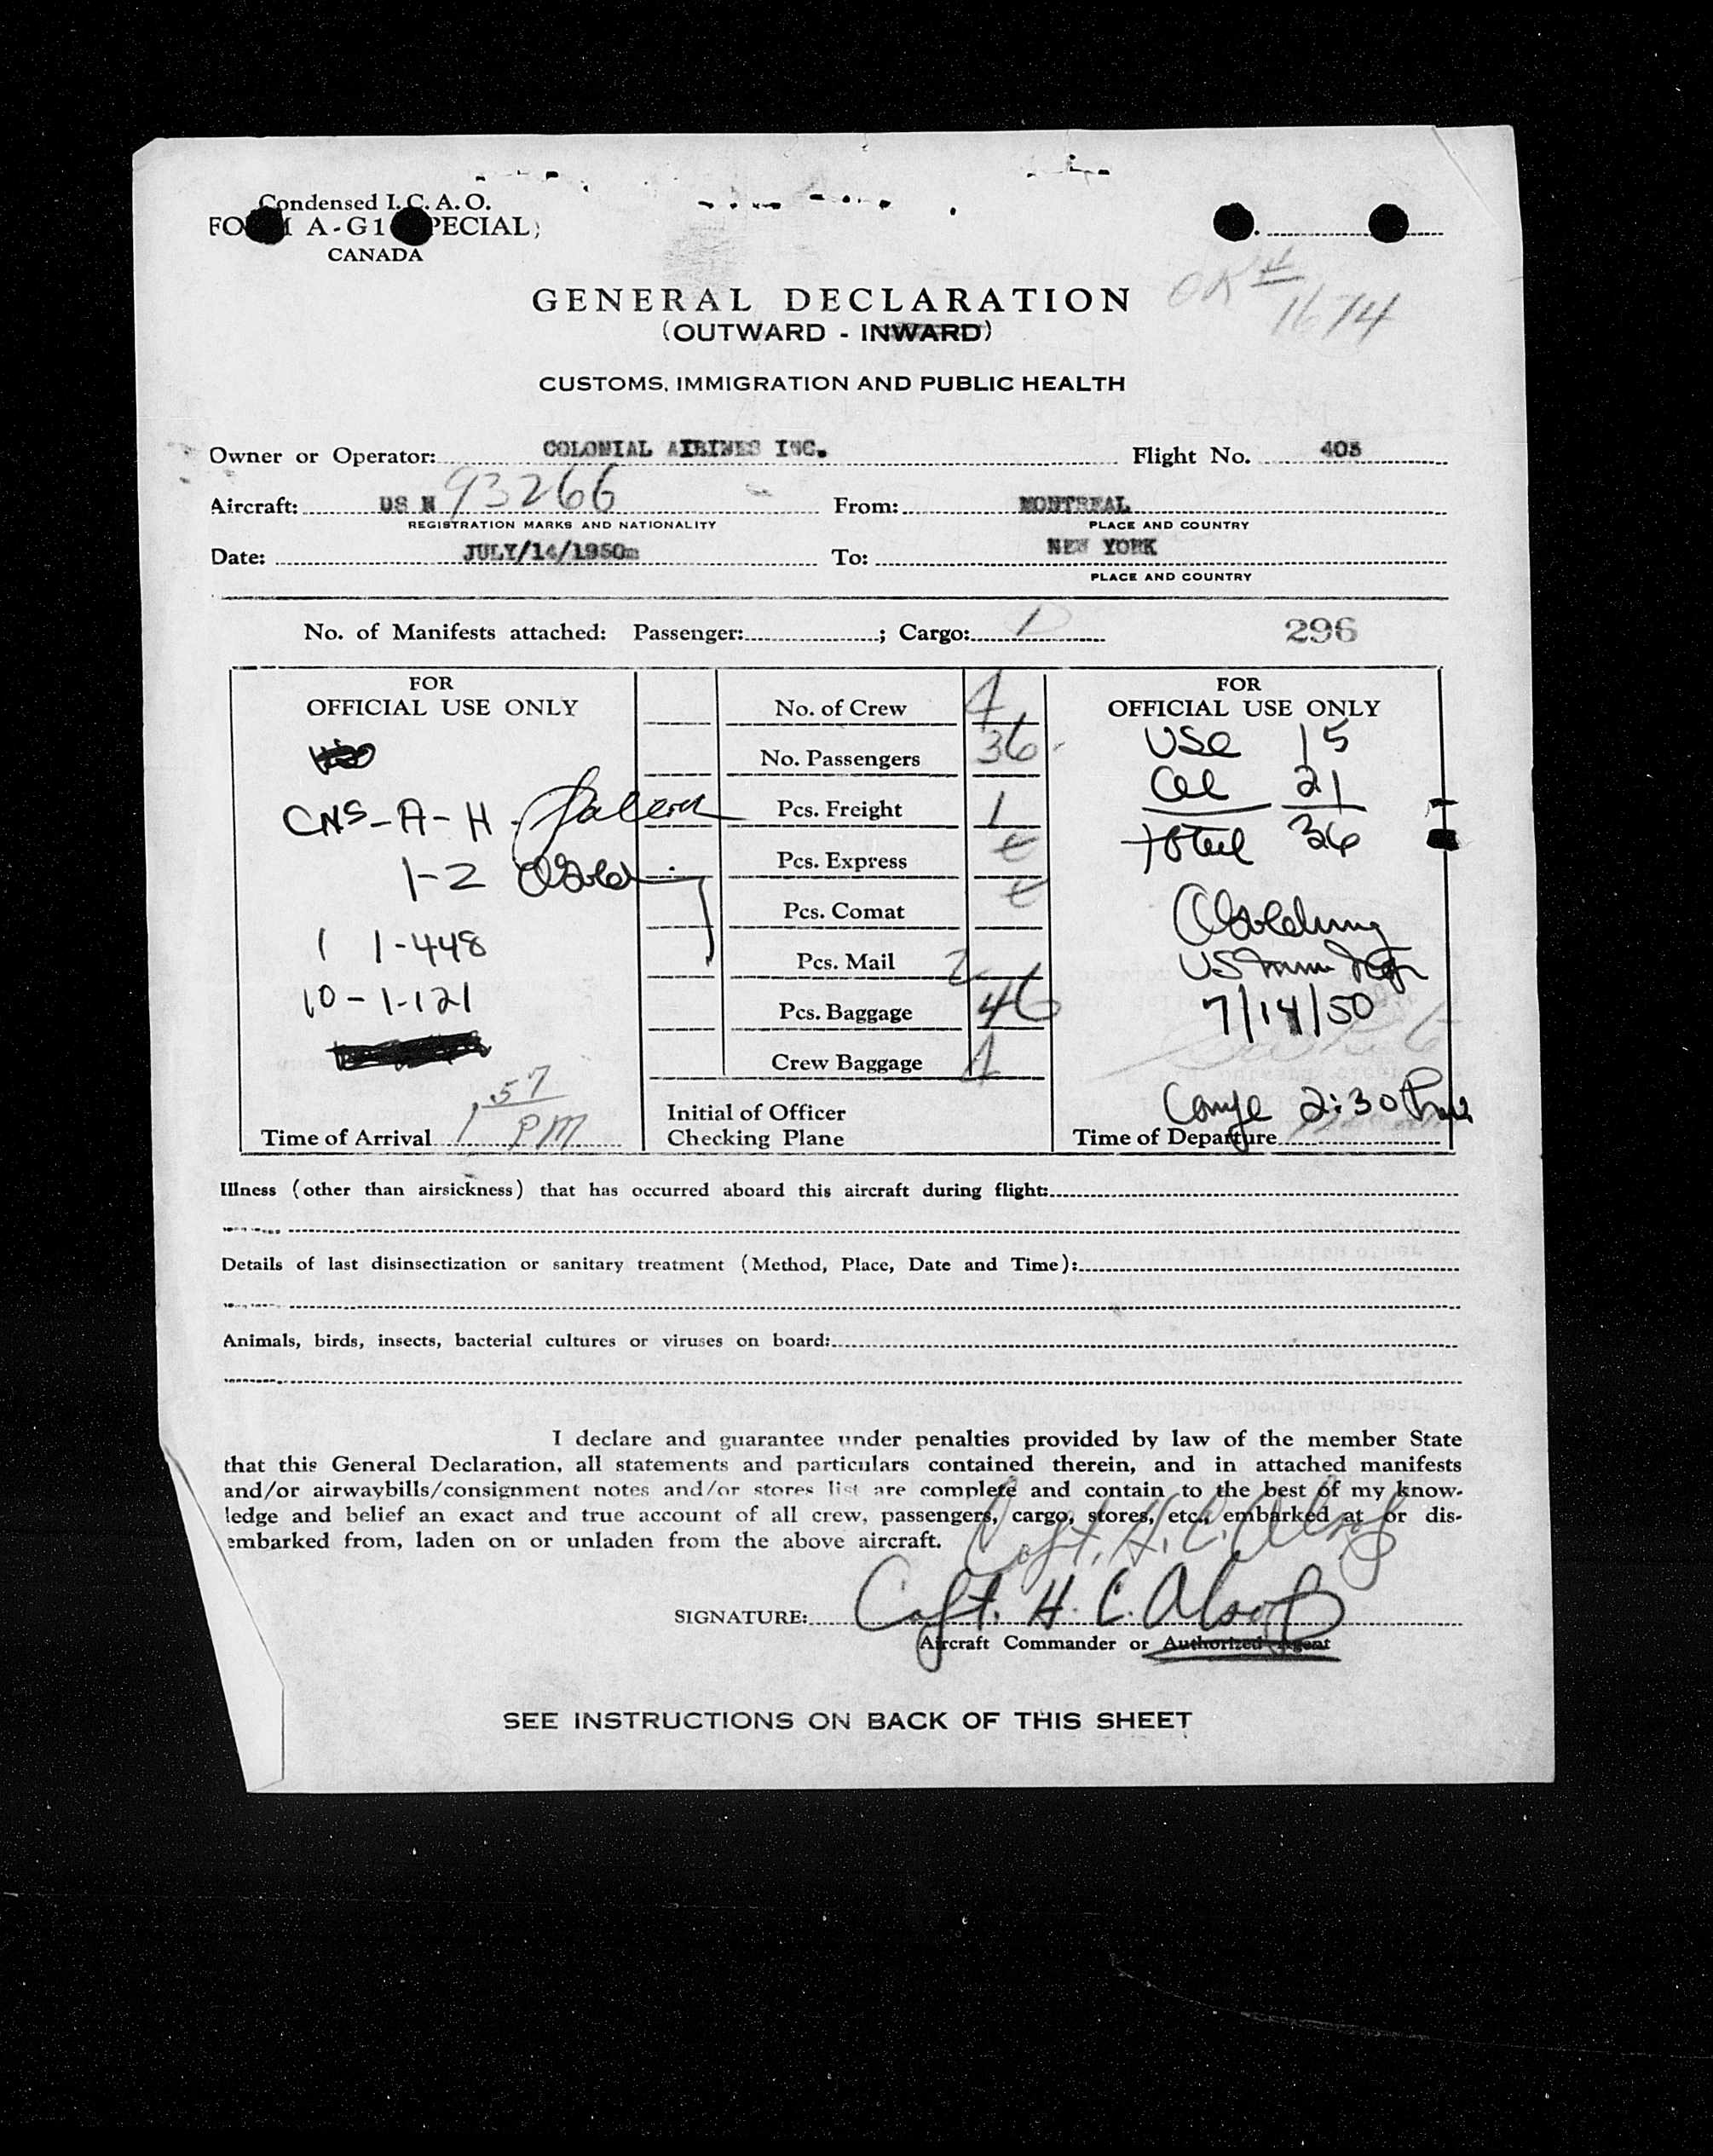 Condensed I.C.A.O.
FORM A-G1 (SPECIAL)
CANADA
OK # 1674
GENERAL DECLARATION
(OUTWARD - INWARD)
CUSTOMS, IMMIGRATION AND PUBLIC HEALTH
Owner or Operator: COLONIAL AIRINES INC. Flight No. 403
Aircraft: US N 93266 From: MONTREAL
REGISTRATION MARKS AND NATIONALITY PLACE AND COUNTRY
Date: JULY/14/1950 To: NEW YORK
PLACE AND COUNTRY
No. of Manifests attached: Passenger: ; Cargo: 1 296
FOR
OFFICIAL USE ONLY
CNS-A-H
1-2
1 1-448
10-1-121
1.57 PM
Time of Arrival
No. of Crew 4
No. Passengers 36
Pcs. Freight 1
Pcs. Express
Pcs. Comat
Pcs. Mail 2
Pcs. Baggage 46
Crew Baggage 4
Initial of Officer
Checking Plane
FOR
OFFICIAL USE ONLY
USC 15
21
total 36
US Imm
7/14/50
2:30
Time of Departure
Illness (other than airsickness) that has occurred aboard this aircraft during flight:
Details of last disinsectization or sanitary treatment (Method, Place, Date and Time):
Animals, birds, insects, bacterial cultures or viruses on board:
I declare and guarantee under penalties provided by law of the member State
that this General Declaration, all statements and particulars contained therein, and in attached manifests
and/or airwaybills/consignment notes and/or stores list are complete and contain to the best of my know-
ledge and belief an exact and true account of all crew, passengers, cargo, stores, etc., embarked at or dis-
embarked from, laden on or unladen from the above aircraft.
Capt. H. C. Alsop
SIGNATURE: Capt. H. C. Alsop
Aircraft Commander or Authorized Agent
SEE INSTRUCTIONS ON BACK OF THIS SHEET